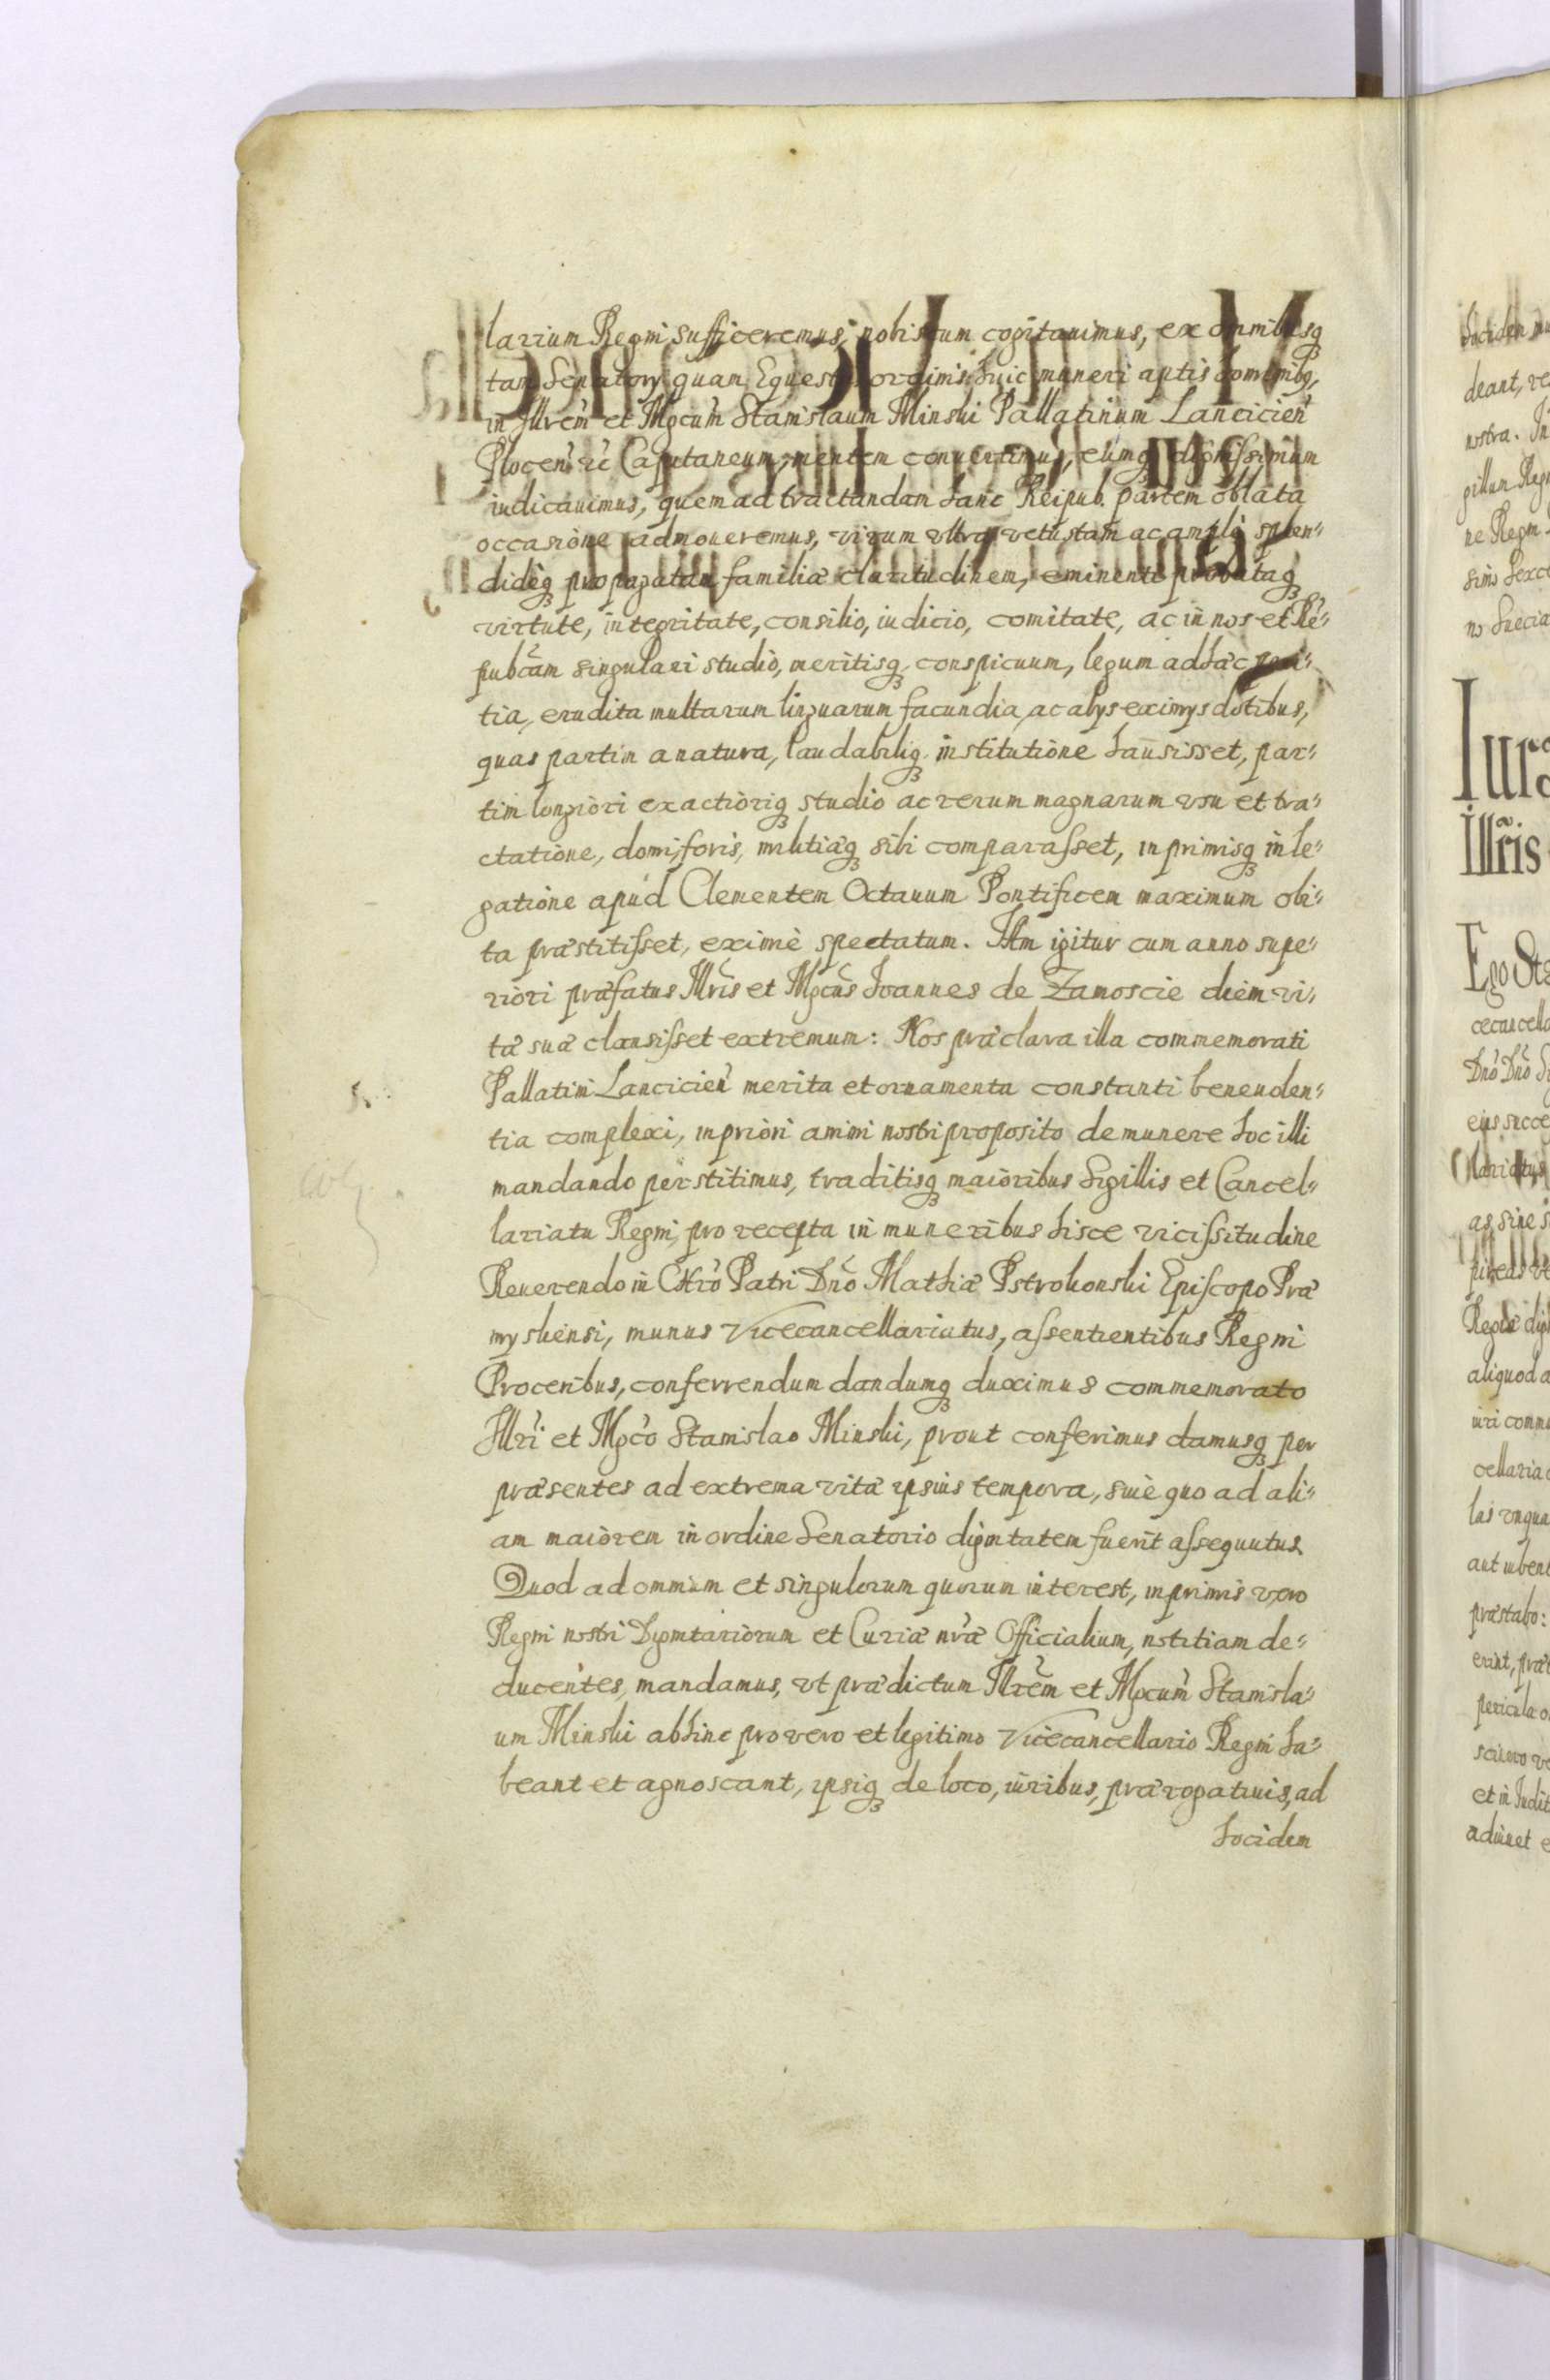 larium Regni sufficeremus, nobiscum cogitauimus, ex omnibusq₃
tam Senatorÿ quam Equestris ordinis, huic muneri aptis hominibq₃,
in Illrem̃ et Mgcum̃ Stanislaum Minski Pallatinum Lancicien̄
Plocen̄ Capitaneum, mentem conuertimus, eumq₃ dignissimum
iudicauimus, quem ad tractandam hanc Reipub. partem oblata
occasione admoueremus, virum vltra vetustam ac amplè splen-
didèq₃ propagatam familiæ claritudinem, eminenti probataq₃
virtute, integritate, consilio, iudicio, comitate, ac in nos et Re-
pubcãm singulari studio, meritisq₃ conspicuum, legum adhæc peri-
tia, erudita multarum linguarum facundia, ac alÿs eximÿs dotibus,
quas partim a natura, laudabiliq₃ institutione hausisset, par-
tim longiori exactioriq₃ studio ac rerum magnarum vsu et tra-
ctatione, domi, foris, militiæq₃ sibi comparasset, inprimisq₃ in le-
gatione apud Clementem Octauum Pontificem maximum obi-
ta præstitisset, eximiè spectatum. Itm igitur cum anno supe-
riori præfatus Illris̃ et Mgcus̃ Ioannes de Zamoscie diem vi-
tæ suæ clausisset extremum: Nos præclara illa commemorati
Pallatini Lancicien̄ merita et ornamenta constanti beneuolen-
tia complexi, in priori animi nostri proposito de munere hoc illi
mandando perstitimus, traditisq₃ maioribus Sigillis et Cancel-
lariatu Regni, pro recepta in muneribus hisce vicissitudine
Reuerendo in Chrõ Patri Dnõ Mathiæ Pstrokonski Episcopo Præ
mysliensi, munus Vicecancellariatus, assentientibus Regni
Proceribus, conferrendum dandumq₃ duximus commemorato
Illri̇̃ et Mgcõ Stanislao Minski, prout conferimus damusq₃ per
præsentes ad extrema vitæ ipsius tempora, siuè quo ad ali-
am maiorem in ordine Senatorio dignitatem fuerit assequutus.
Quod ad omnium et singulorum quorum interest, inprimis vero
Regni nostri Dignitariorum et Curiæ nræ̃ Officialium, notitiam de-
ducentes, mandamus, vt prædictum Illrem̃ et Mgcum̃ Stanisla-
um Minski abhinc pro vero et legitimo Vicecancellario Regni ha-
beant et agnoscant, ipsiq₃ de loco, iuribus, prærogatiuis, ad
hocidem